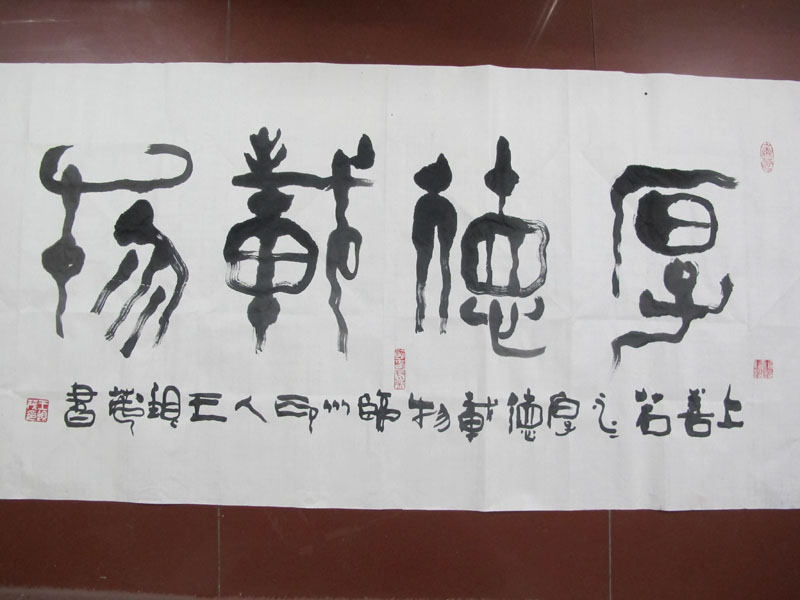 厚德載物
上善若之厚德載物 州印人王 書